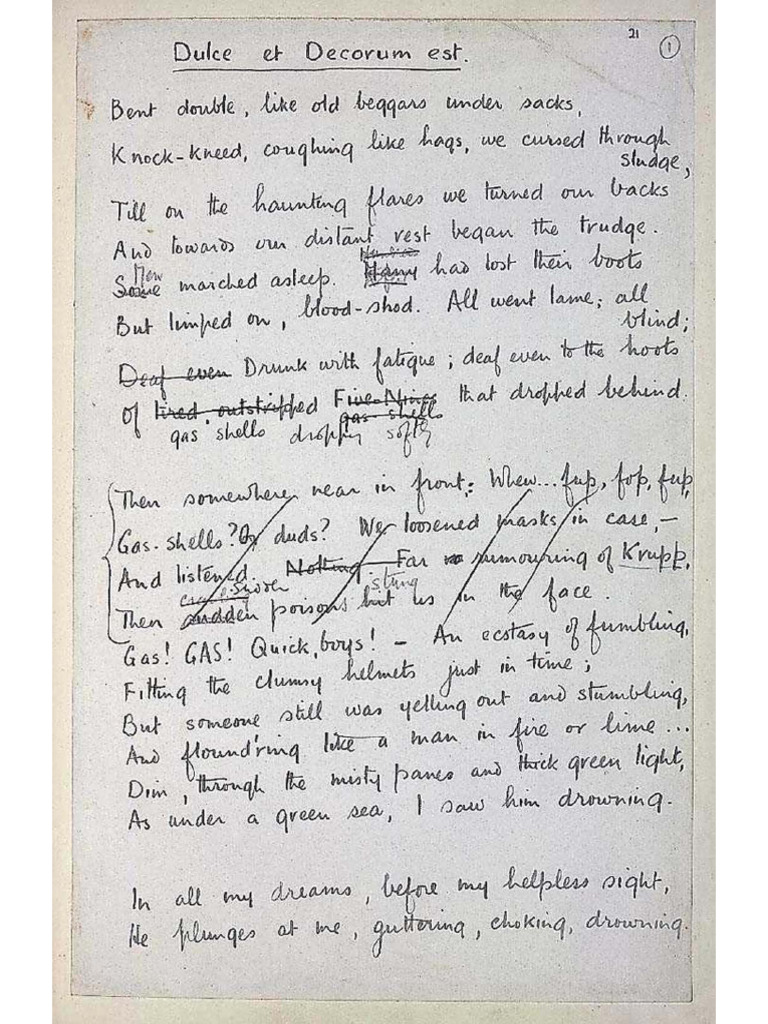 21 1
Dulce et Decorum est.
Bent double, like old beggars under sacks,
Knock-kneed, coughing like hags, we cursed through
sludge,
Till on the haunting flares we turned our backs
And towards our distant rest began the trudge.
Men
Some marched asleep. Many had lost their boots
But limped on, blood-shod. All went lame; all
blind;
Deaf even Drunk with fatigue; deaf even to the hoots
Of tired outstripped Five-Nines that dropped behind.
gas shells
gas shells dropping softly
Then somewhere near in front: Whew... fup, fop, fup,
Gas-shells? Or duds? We loosened masks in case, —
And listened. Nothing. Far rumouring of Krupp,
sudden stung
Then sudden poisons hit us in the face.
Gas! GAS! Quick, boys! — An ecstasy of fumbling,
Fitting the clumsy helmets just in time;
But someone still was yelling out and stumbling,
And flound'ring like a man in fire or lime...
Dim, through the misty panes and thick green light,
As under a green sea, I saw him drowning.
In all my dreams, before my helpless sight,
He plunges at me, guttering, choking, drowning.